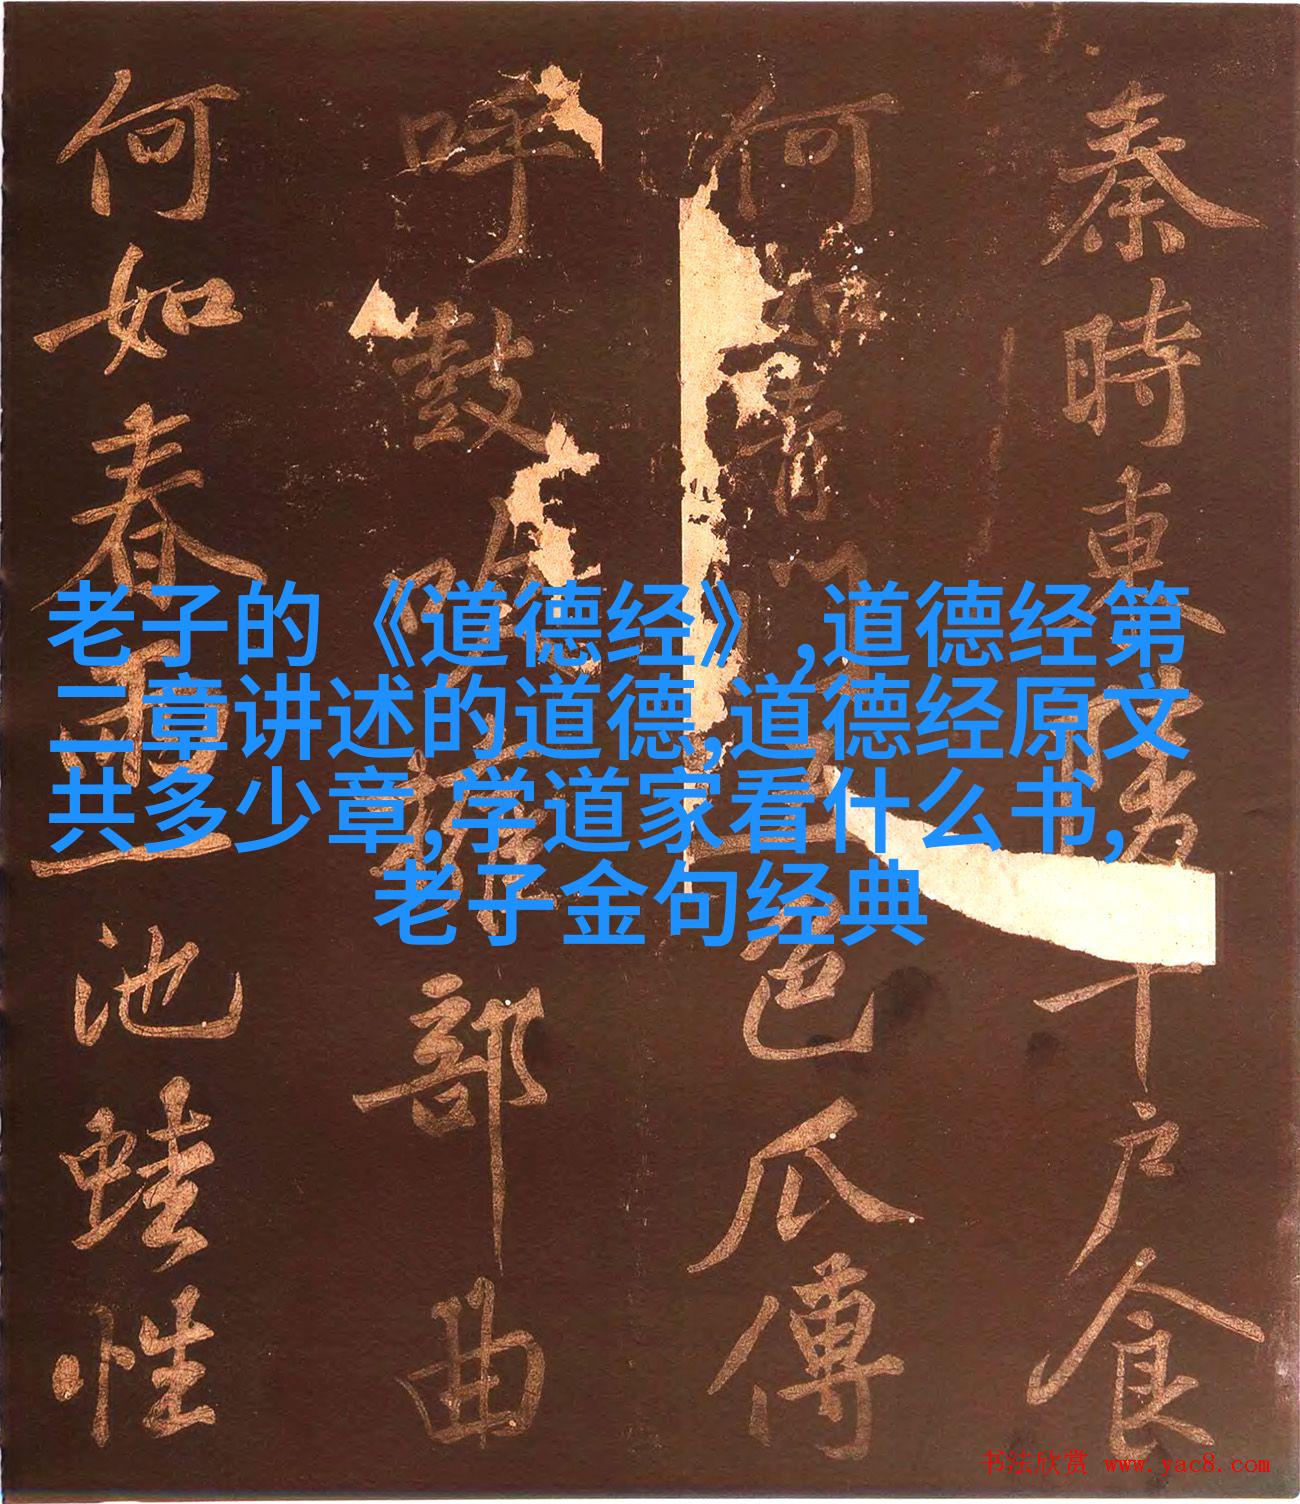 秦時東陵千户食
何如青門五色瓜傳
呼鼓吹擁部曲
何如春雨一池蛙性
老子的《道德经》,道德经第
二章讲述的道德,道德经原文
共多少章,学道家看什么书,
老子金句经典
书法欣赏 www.yac8.com